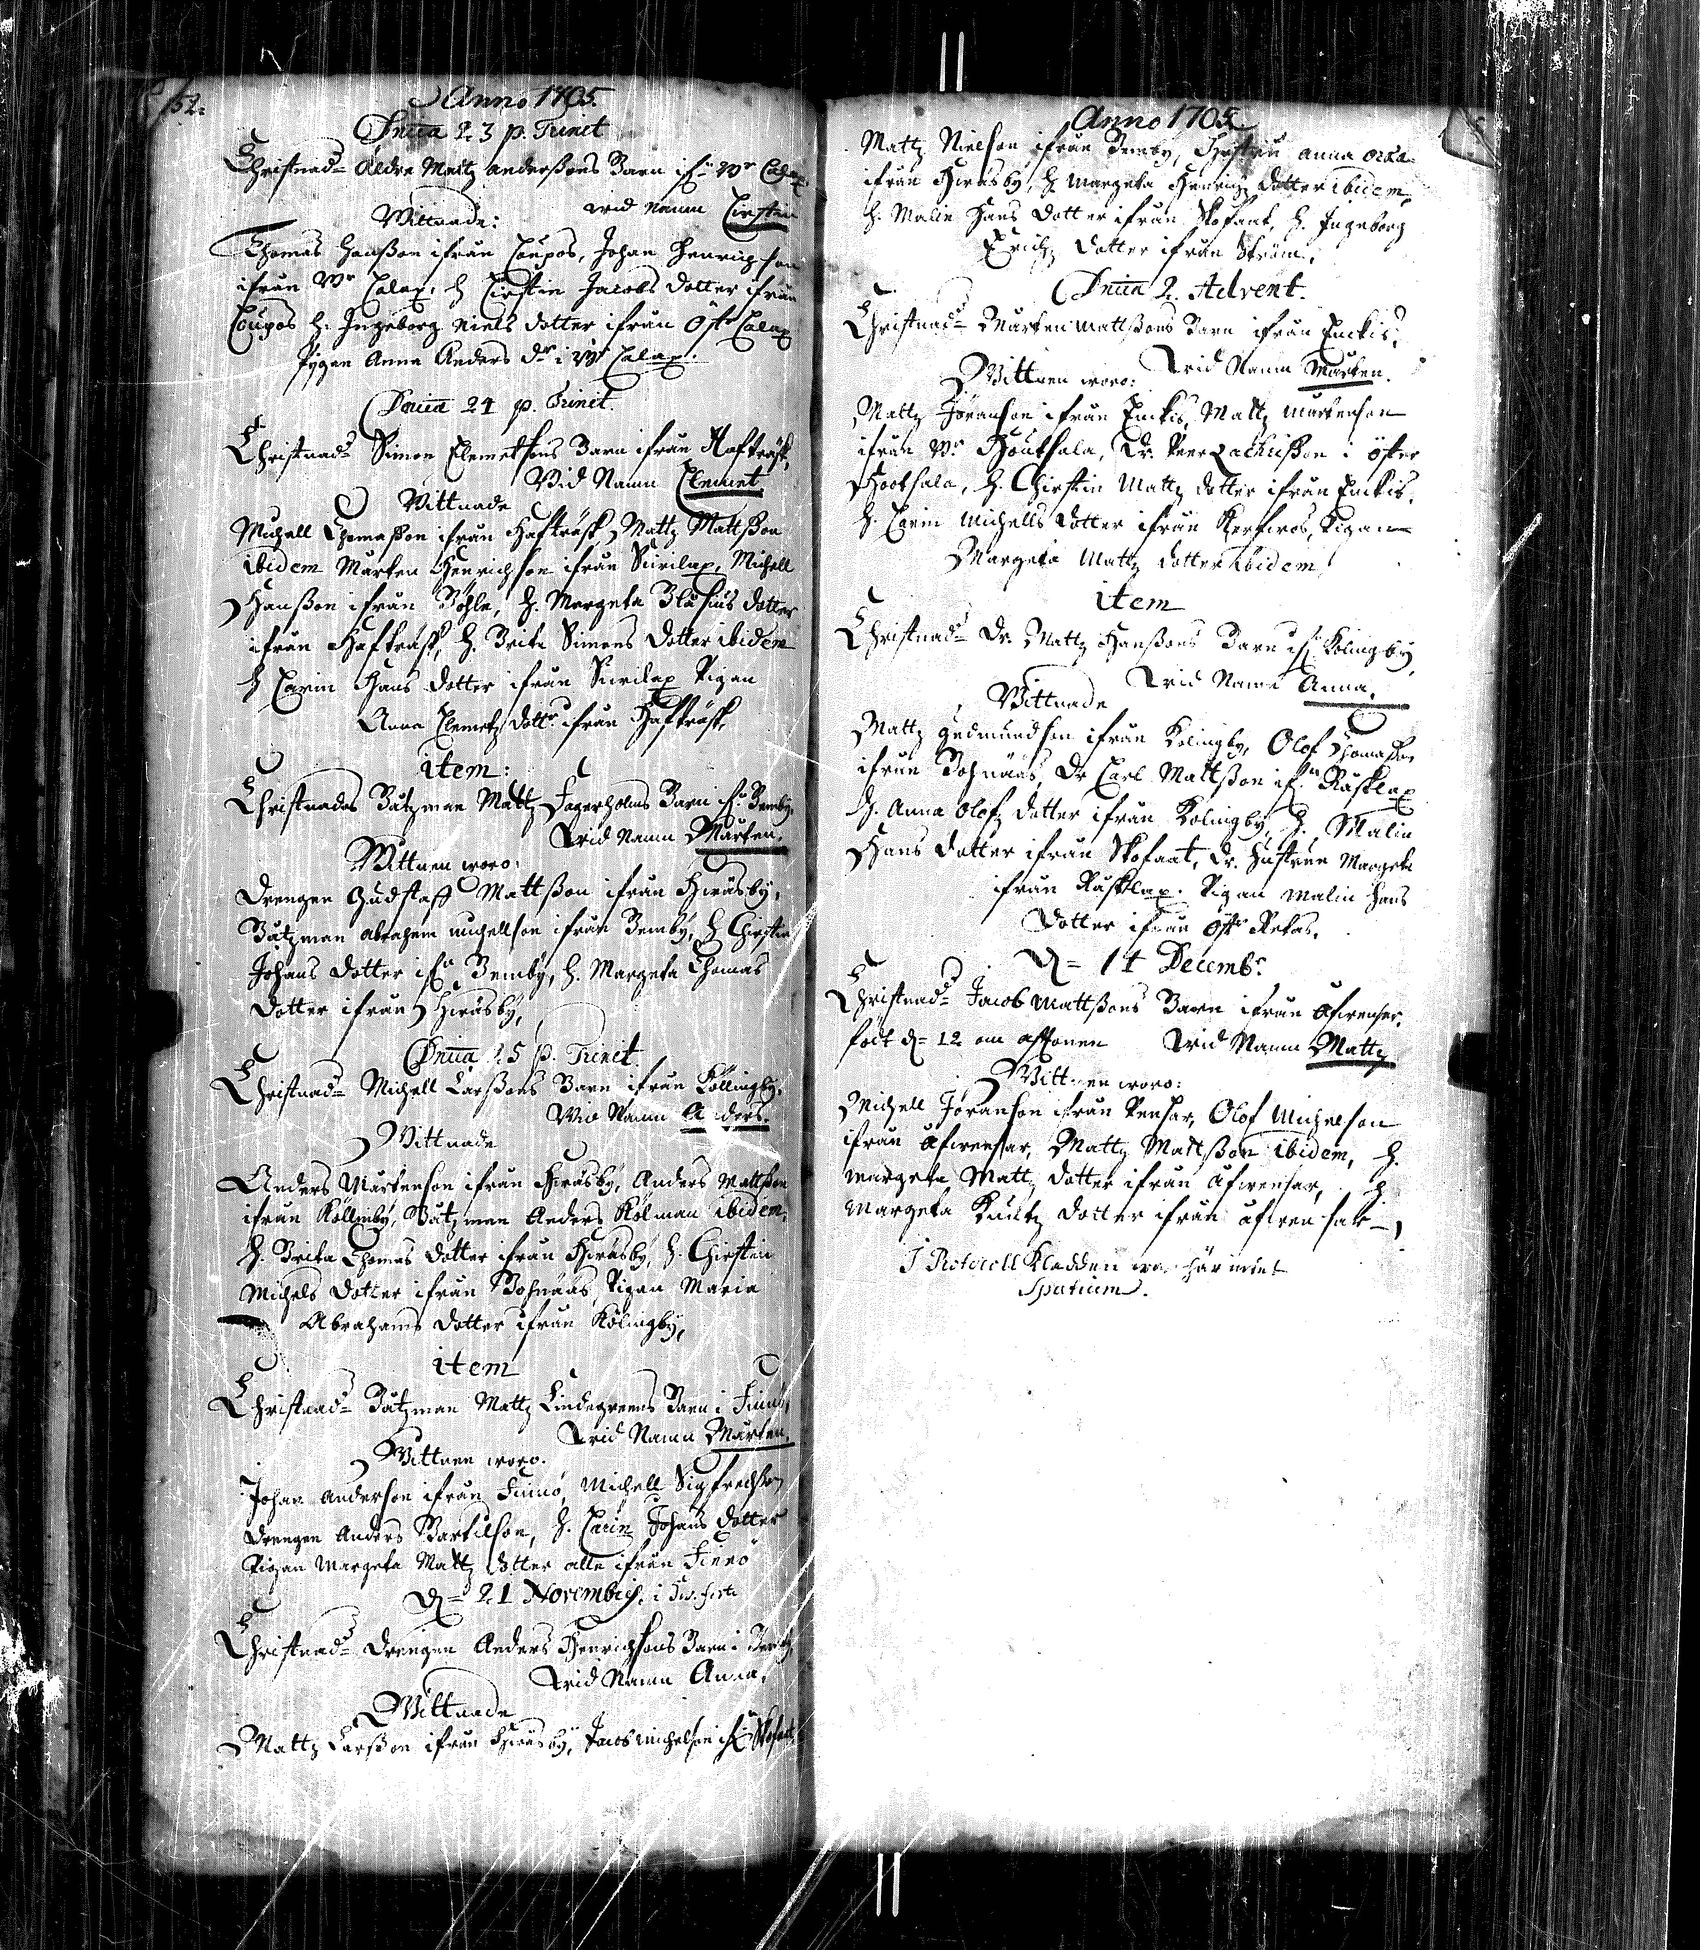 52.
Anno 1705.
Dnica 23 p. Trinit
Christnad= Äldre Mattz anderßons Barn if: Wr Calax.
wid namn Cirstin
Wittnade:
Thomas Hanßon ifrån Coupos, Johan Henrichson
ifrån Wr Calax, h Cirstin Jacobs dotter ifrån
Coupos h. Ingeborg Niels dotter ifrån Öst Calax
Pygan Anna Anders dr i Wr Calax.
Dnica 24 p. Trinit.
Christnad= Simon Clemetsons Barn ifrån Hafträsk,
Wid Namn Clemet
Wittnade
Michell Thomaßon ifrån Hafträsk, Mattz Mattßon
ibidem Mårten Henrichson ifrån Siirilax, Michell
Hanßon ifrån Böhle, h. Margeta Blasius dotter
ifrån Hafträsk, h. Brita Simons dotter ibidem
h Carin Hans dotter ifrån Siirilax Pigan
Anna Clemetz dottr ifrån Hafträsk
item:
Christnades Båtzman Mattz Fagerholms Barn if: Bemby,
Wid namn Mårten.
Wittnen woro:
Drengen Gudstaff Mattßon ifrån Hwäsby,
Båtzman abraham michellson ifrån Bemby, h Chirstin
Johans dotter ifn Bemby, h. Margeta Thomas
dotter ifrån Hwäsby,
Dnica 25 p. Trinit
Christnad= Michell Larßons Barn ifrån Köllingby.
Wid Namn Anders.
Wittnade
Anders Mårtenson ifrån Hwäsby, Anders Mattßon
ifrån Köllinby, Båtzman Anders Kölman ibidem,
h. Brita Thomas dotter ifrån Hwäsby, h. Chirstin
Michels dotter ifrån Bohnääs, Pigan Maria
Abrahams dotter ifrån Kölingby,
item
Christnad= Båtzman Mattz Lindegreens Barn i Finnö,
Wid Namn Mårten.
Wittnen woro.
Johan Anderson ifrån Finnö, Michell Sigfredßon
Drengen Anders Bartilson, h. Carin Johans dotter
Pigan Margeta Mattz dotter alla ifrån Finnö
D= 21 Novembris.
Christnad= Drengen Anders Henrichsons Barn i
Wid Namn Anna,
Wittnade
Mattz Larßon ifrån Hwäsby, Jacob michelson if: Skofaat,
Anno 1705
Mattz Nielson ifrån Bemby, Hustru anna
ifrån Hwäsby, h Margeta Henrichz dotter ibidem,
h. Malin Hans dotter ifrån Skofaat, h. Ingeborg
Erichz dotter ifrån Ström,
Dnica 2. Advent.
Christnad= Mårten Mattßons Barn ifrån Enckis,
Wid Namn Mårten.
Wittnen woro:
Mattz Jöranson ifrån Enckis, Mattz Mårtenson
ifrån Wr Houtsala, Dr. Peer Zachrißon i öster
Hootsala, h. Chirstin Mattz dotter ifrån Enckis.
h. Carin Michells dotter ifrån Kerkwos, Pigan
Margeta Mattz dotter ibidem,
item
Christnad= Dr. Mattz Hanßons Barn if: Kölingby,
Wid Namn Anna.
Wittnade
Mattz Gudmundson ifrån Kölingby, Olof Thomaßon
ifrån Bohnääs, Dr Carl Mattßon ifn Räsklax
h. Anna Olofz dotter ifrån Kölingby, h. Malin
Hans dotter ifrån Skofaat, Dr. hustrun Margeta
ifrån Räsklax. Pigan Malin Hans
dotter ifrån östr Retas.
D= 14 Decembr.
Christnad= Jacob Mattßons Barn ifrån Åfwensar,
födt d= 12 om afftonen Wid Namn Mattz
Wittnen woro:
Michell Jöranson ifrån Pensar, Olof Michelson
ifrån Åfwensar, Mattz Mattßon ibidem, h.
Margeta Mattz dotter ifrån Åfwensar, h
Margeta Knutz dotter ifrån åfwensar,
I Protocoll Kladden war här intet
Spatium.